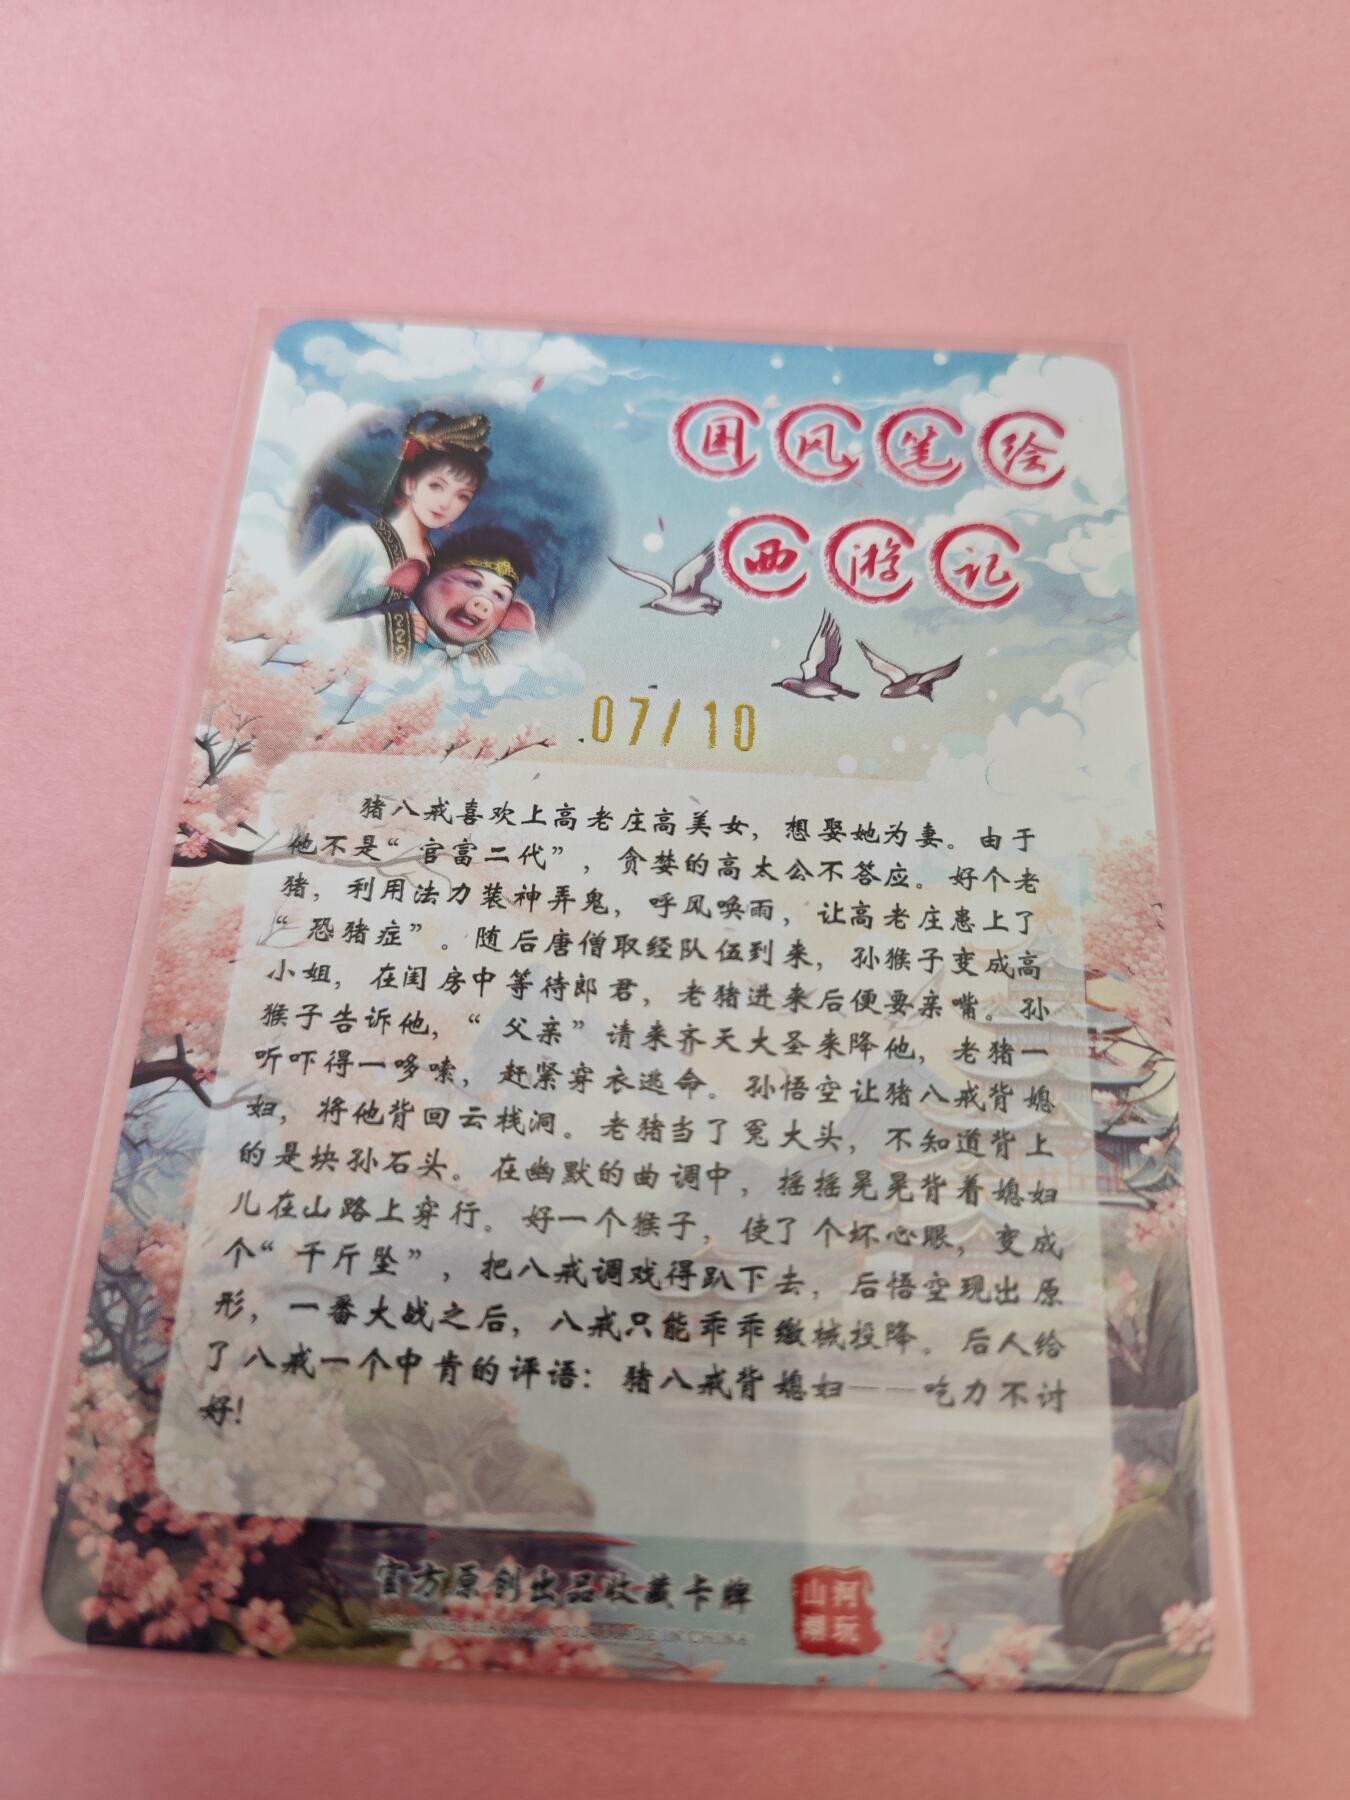 国风笔绘
西游记
07/10
猪八戒喜欢上高老庄高美女，想娶她为妻。由于
他不是“官富二代”，贪婪的高太公不答应。好个老
猪，利用法力装神弄鬼，呼风唤雨，让高老庄患上了
“恐猪症”。随后唐僧取经队伍到来，孙猴子变成高
小姐，在闺房中等待郎君，老猪进来后便要亲嘴。孙
猴子告诉他，“父亲”请来齐天大圣来降他，老猪一
听吓得一哆嗦，赶紧穿衣逃命。孙悟空让猪八戒背媳
妇，将他背回云栈洞。老猪当了冤大头，不知道背上
的是块孙石头。在幽默的曲调中，摇摇晃晃背着媳妇
儿在山路上穿行。好一个猴子，使了个坏心眼，变成
个“千斤坠”，把八戒调戏得趴下去，后悟空现出原
形，一番大战之后，八戒只能乖乖缴械投降。后人给
了八戒一个中肯的评语：猪八戒背媳妇——吃力不讨
好！
官方原创出品收藏卡牌
MADE IN CHINA
山河
潮玩